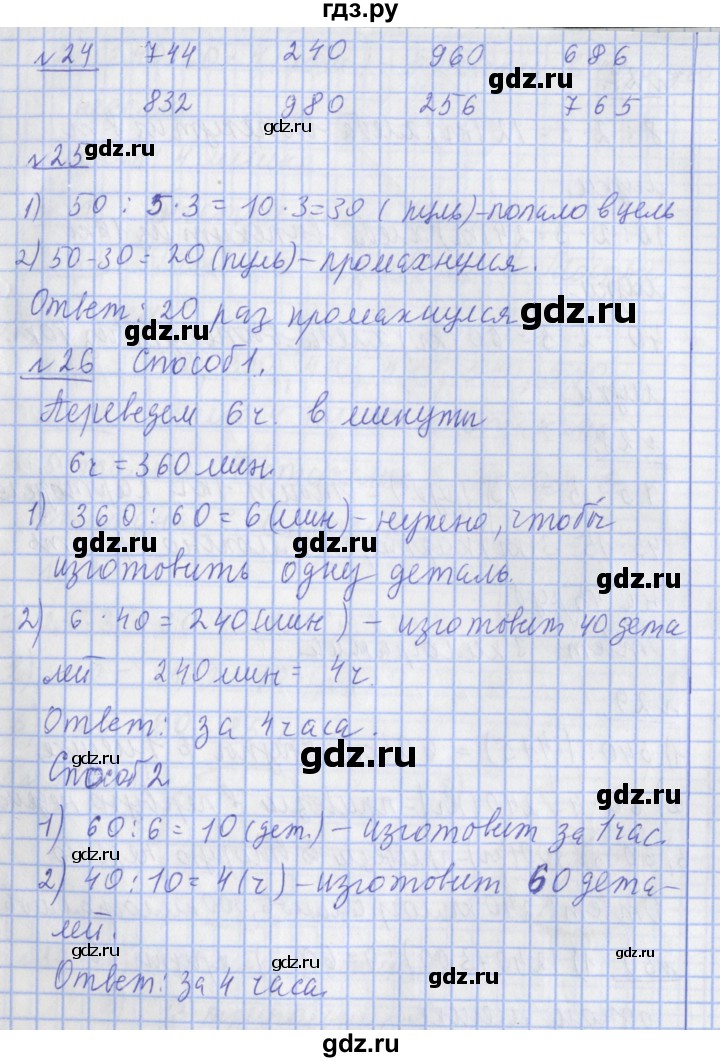 гдз.ру
№24 744 240 960 686
gdz.ru
832 980 256 765
gdz.ru
№25 gdz.ru
1) 50 : 5 · 3 = 10 · 3 = 30 ( пуль) - попало в цель
gdz.ru gdz.ru
2) 50 - 30 = 20 (пуль) - промахнулся.
Ответ: 20 раз промахнулся
gdz.ru gdz.ru
№26 Способ 1.
Переведем 6 ч. в минуты
gdz.ru gdz.ru
6ч = 360 мин.
1) 360 : 60 = 6 (мин) - нужно, чтобы
gdz.ru gdz.ru
изготовить одну деталь.
gdz.ru
2) 6 · 40 = 240 (мин) - изготовит 40 дета
gdz.ru
лей 240 мин = 4ч.
Ответ: за 4 часа.
gdz.ru gdz.ru
Способ 2.
gdz.ru
1) 60 : 6 = 10 (дет.) - изготовит за 1 час.
gdz.ru
2) 40 : 10 = 4 (ч) - изготовит 60 дета-
gdz.ru
лей.
gdz.ru gdz.ru gdz.ru
Ответ: за 4 часа.
gdz.ru
gdz.ru